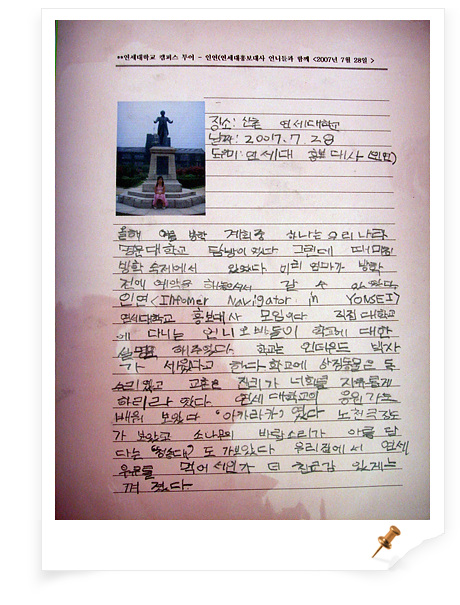 **연세대학교 캠퍼스 투어 - 인연(연세대홍보대사 언니들과 함께 <2007년 7월 28일 >
장소: 신촌 연세대학교
날짜: 2007. 7. 28
도우미: 연세대 홍보대사 (인연)
올해 여름 방학 계획중 하나는 우리나라
명문대학교 탐방이 었다 그런데 때마침
방학 숙제에서 있었다 미리 엄마가 방학
전에 예약을 해놓으셔서 갈 수 있었다
인연<Infomer Navigator in YONSEI>
연세대학교 홍보대사 모임이다 직접 대학교
에 다니는 언니 오빠들이 학교에 대한
설명을 해주었다 학교는 언더우드 박사
가 세웠다고 한다 학교에 상징동물은 독
수리 였고 교훈은 진리가 너희를 자유롭게
하리라 였다 연세 대학교의 응원가도
배워 보았다 "아카라카" 였다 노천극장도
가 보았고 소나무의 바람소리가 아름 답
다는 "청송대" 도 가보았다 우리집에서 연세
우유를 먹어서인가 더 친근감 있게는
껴 졌다.